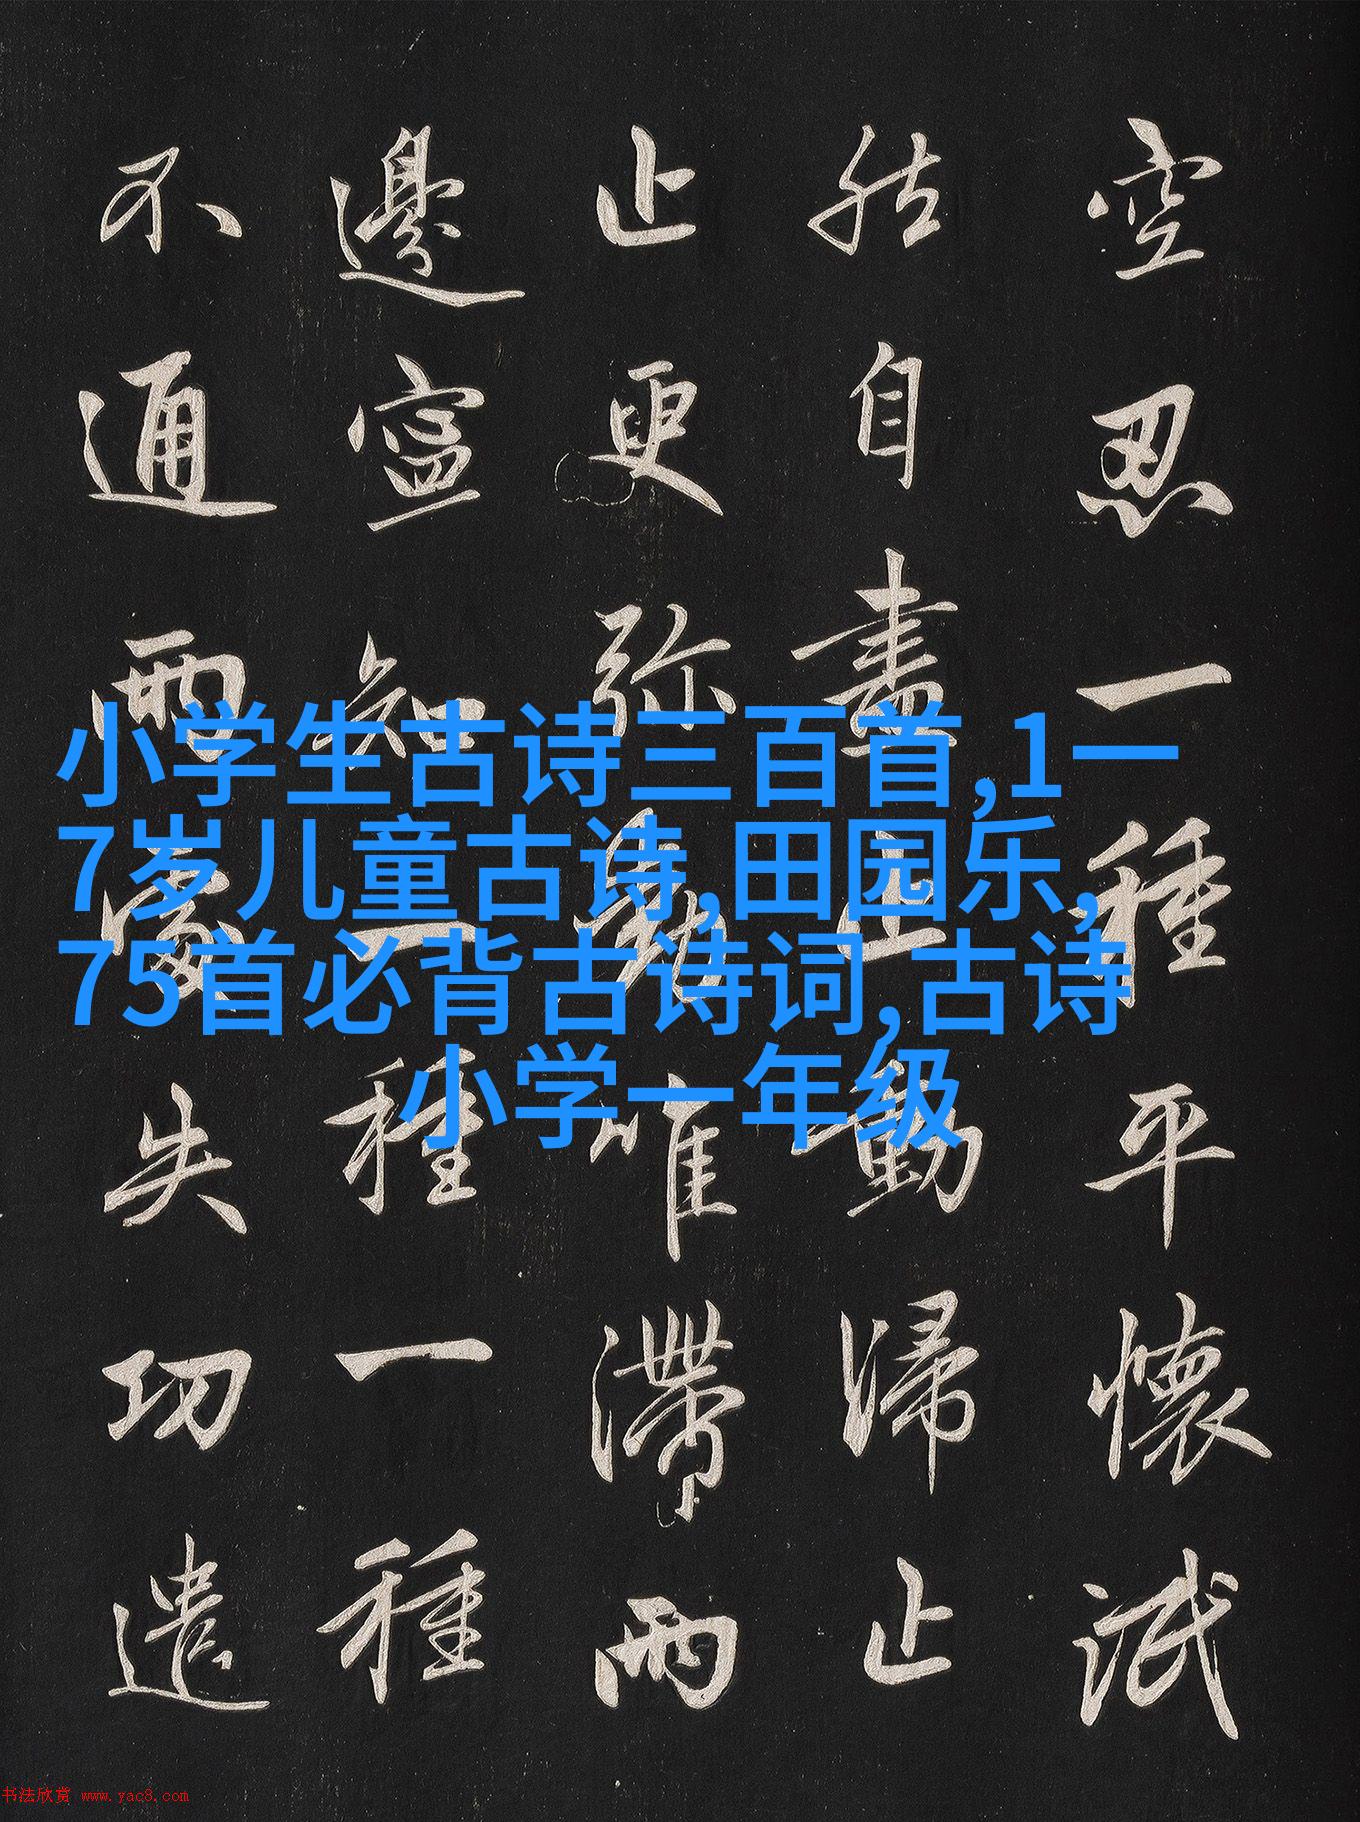 空忍一種平懷泯
然自盡止動歸止
止更弥動唯滯兩
邊寧知一種一種
不通兩處失功遣
小学生古诗三百首,1一
7岁儿童古诗,田园乐,
75首必背古诗词,古诗
小学一年级
书法欣赏 www.yac8.com